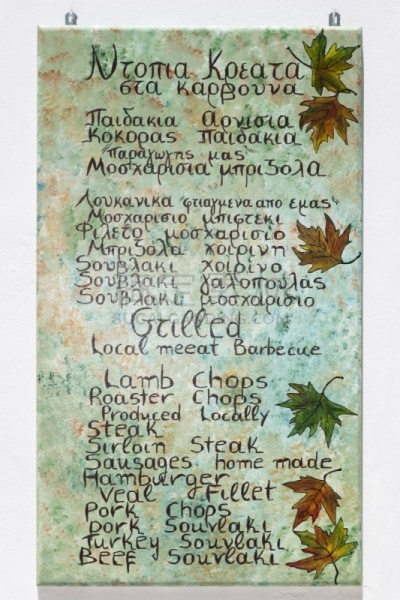 Ντοπια Κρεατα
στα καρβουνα
Παιδακια Αρνισια
Κοκορας Παιδακια
"Παραγωγης μας"
Μοσχαρισια μπριζολα
Λουκανικα "φτιαγμενα απο εμας"
Μοσχαρισιο μπιφτεκι
Φιλετο μοσχαρισιο
Μπριζολα χοιρινη
Σουβλακι χοιρινο
Σουβλακι γαλοπουλας
Σουβλακι μοσχαρισιο
Grilled
Local meeat Barbecue
Lamb Chops
Roaster Chops
Produced Locally
Steak
Sirloin Steak
Sausages home made
Hamburger
Veal Fillet
Pork Chops
Dork Souvlaki
Turkey Souvlaki
Beef Souvlaki